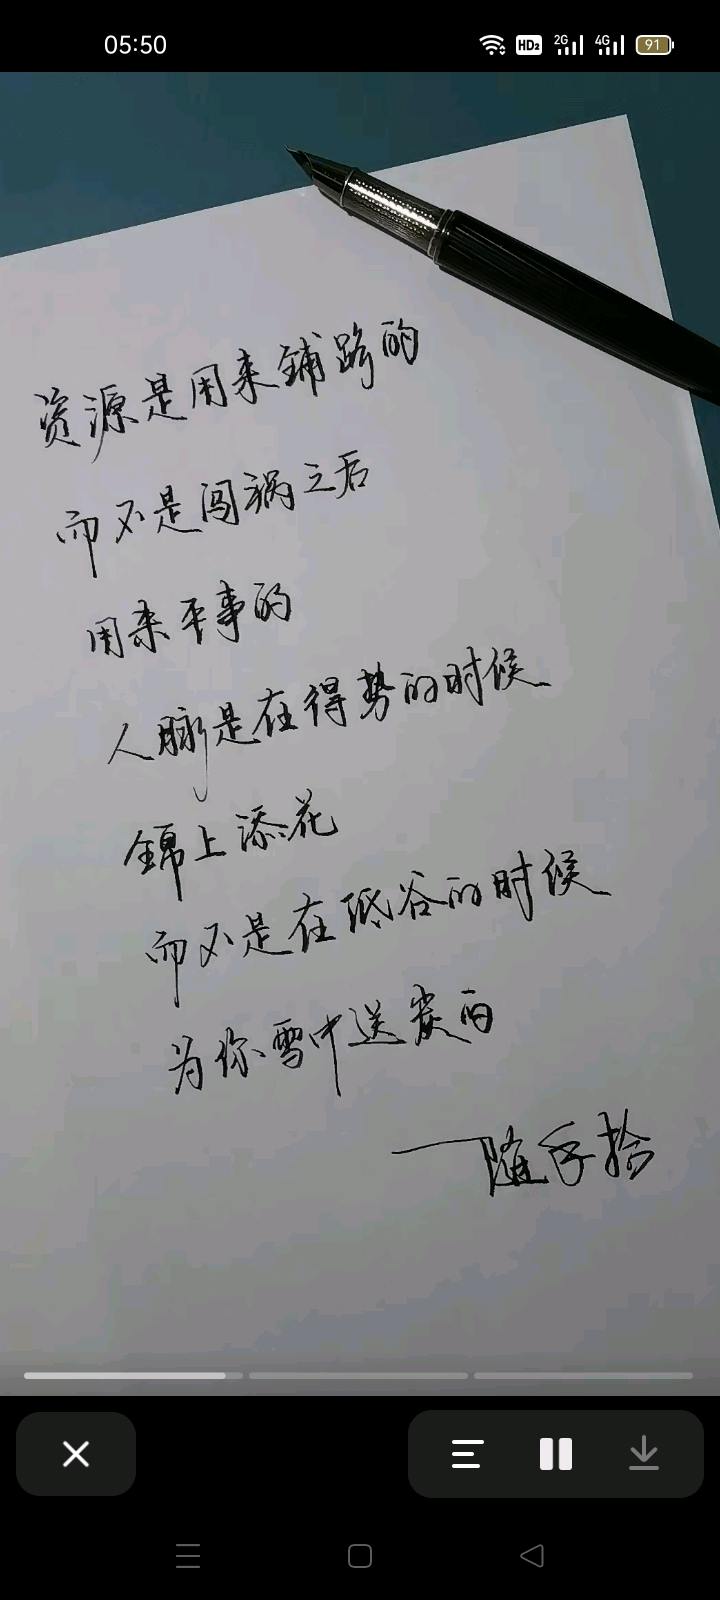 05:50
HD2 2G 4G 91
资源是用来铺路的
而不是闯祸之后
用来平事的
人脉是在得势的时候
锦上添花
而不是在低谷的时候
为你雪中送炭的
——随手拾